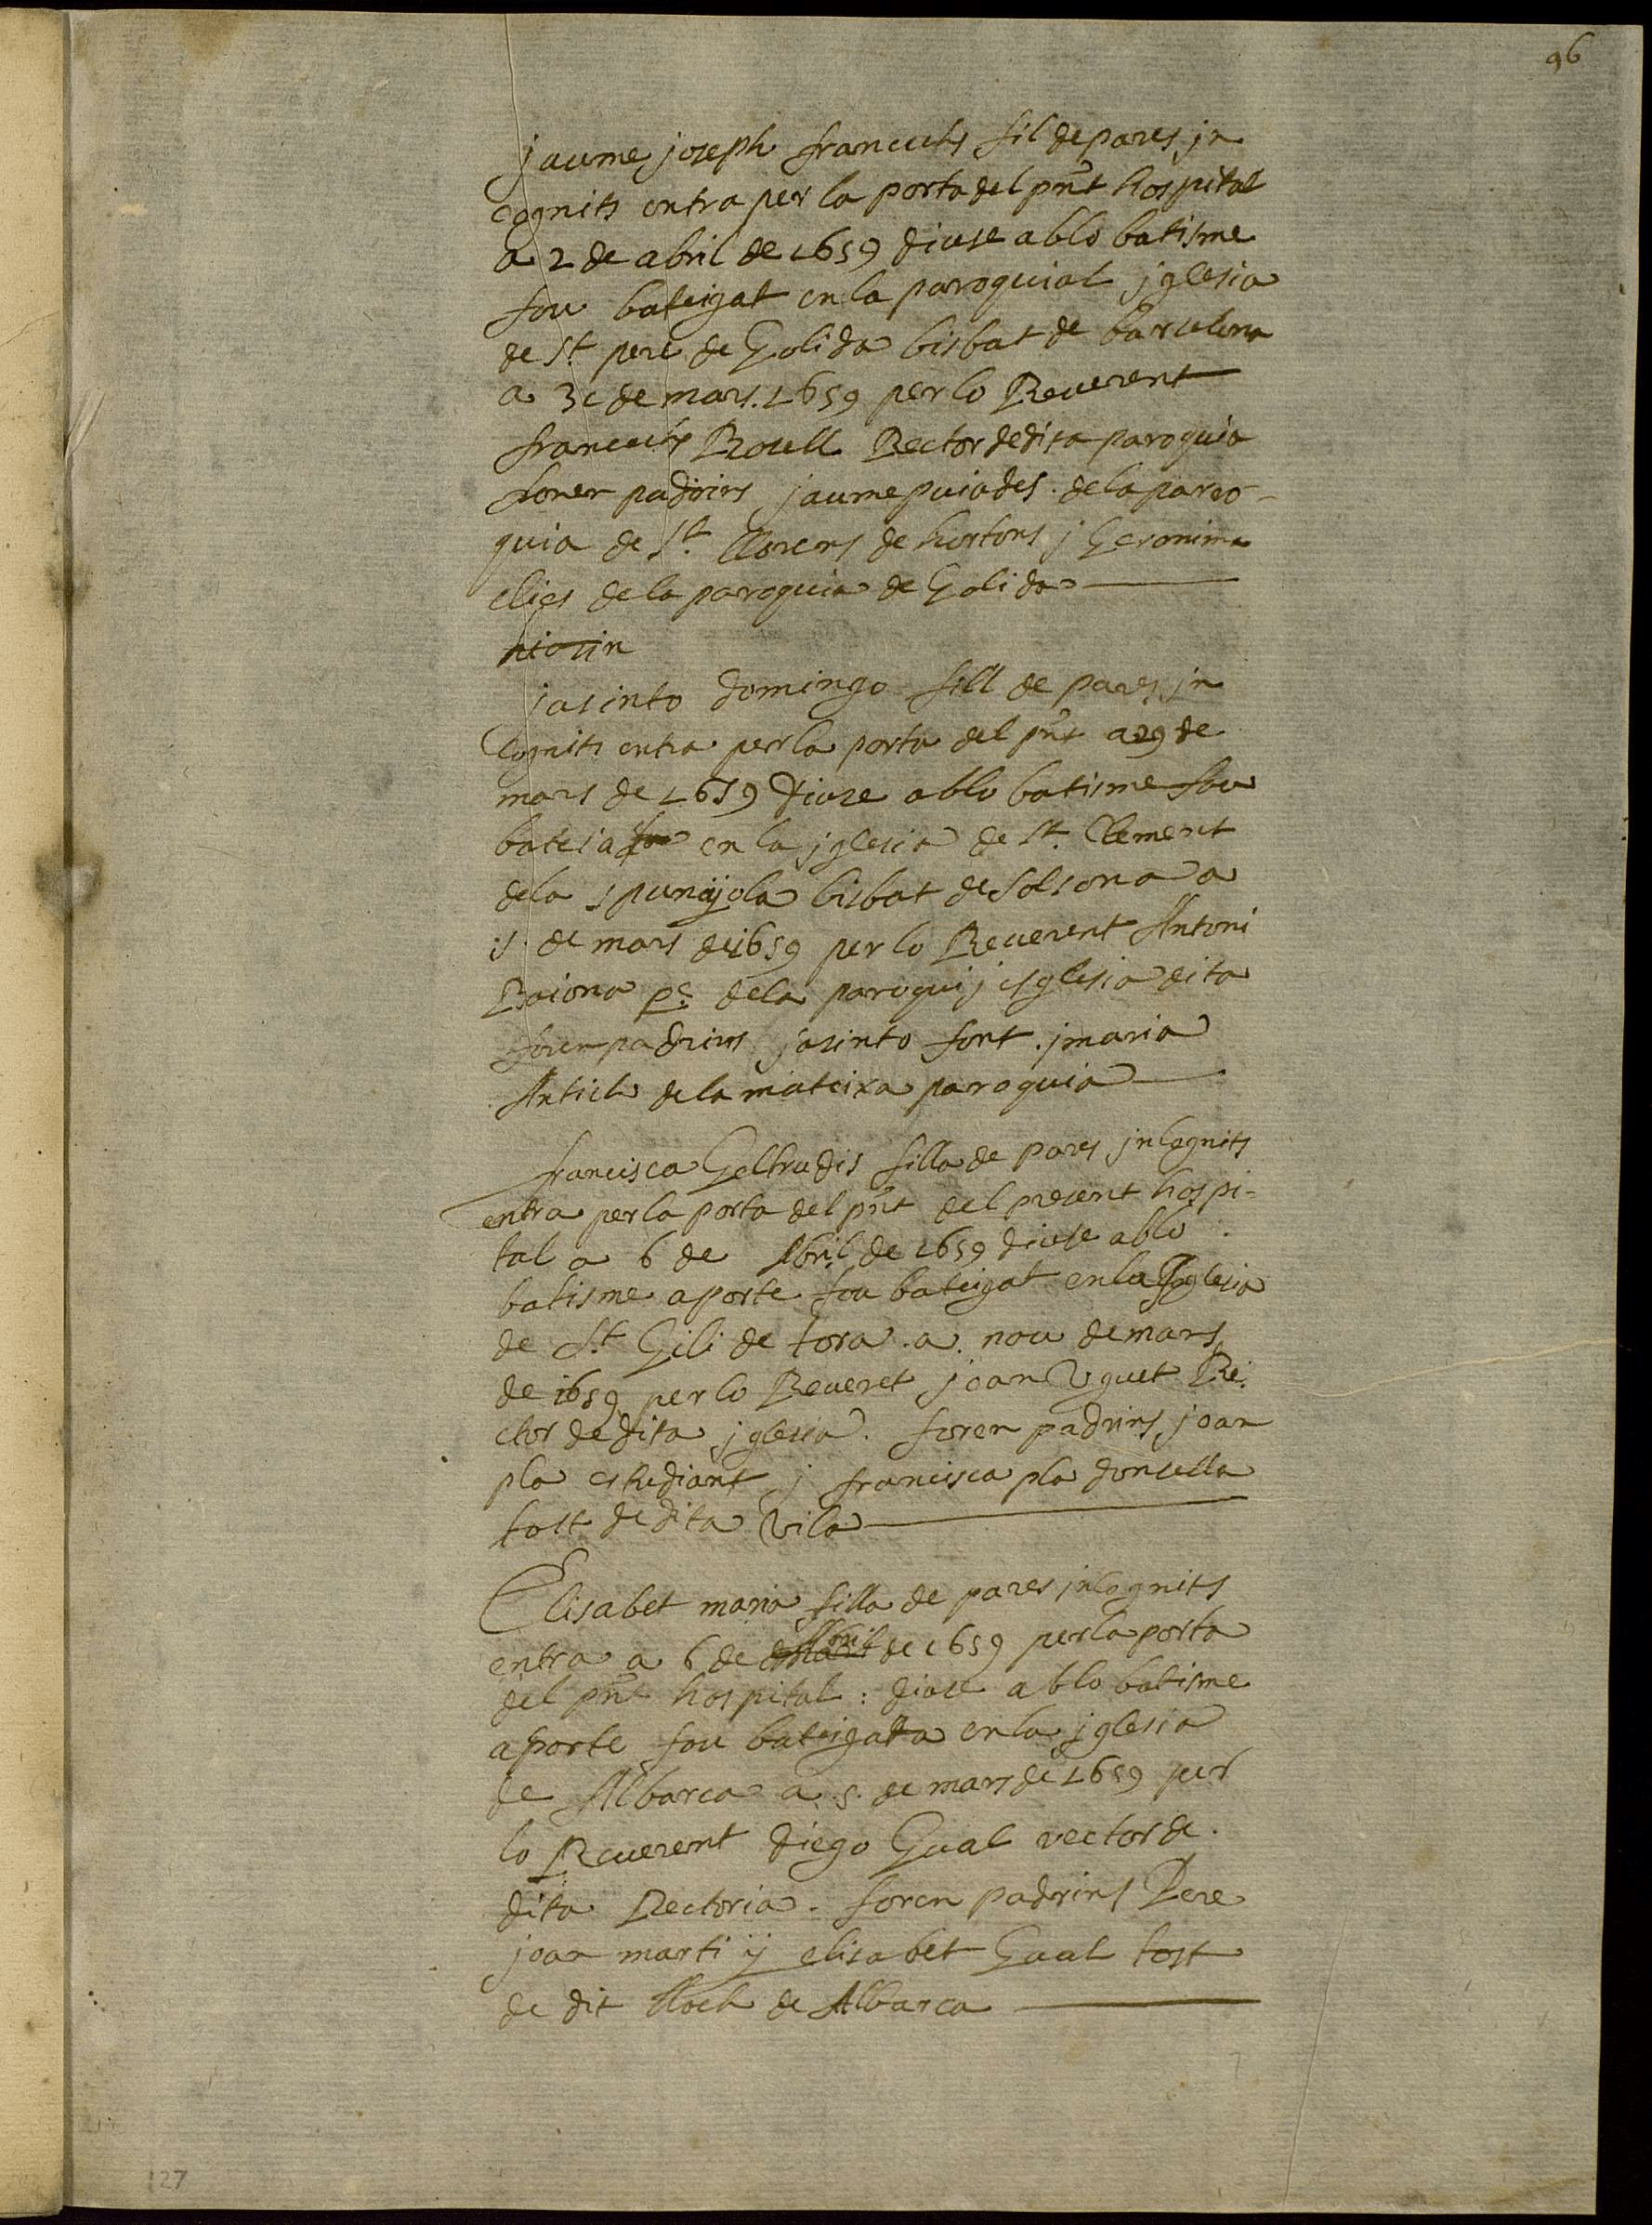 96
jaume joseph francechs fil de pares jn
cognits entra per la porta del pnt hospital
a 2 de abril de 1659 diuse ab lo batisme
fou bateigat en la paroquial jglesia
de St. pere de Gelida bisbat de barcelona
a 3c de mars. 1659 per lo Reuerent
francechs Rouell Rector de dita paroquia
foren padrins jaume puiades. de la paro-
quia de St. llorens de hortons j Geronima
elies de la paroquia de Gelida
jasinto domingo fill de pares jn
cognits entra per la porta del pnt a 29 de
mars de 1659 diuse ab lo batisme fou
bateia en la jglesia de St. Clement
de la spunyola bisbat de solsona a
5. de mars de 1659 per lo Reuerent Antoni
Raiona pe. de la paroqui j esglesia dita
foren padrins jasinto font. j maria
Antich de la mateixa paroquia
francisca Geltrudis filla de pares jncognits
entra per la porta del pnt del present hospi-
tal a 6 de Abril de 1659 diuse ab lo
batisme aporte fou bateigat en la Jglesia
de St. Gili de tora. a. nou de mars
de 1659 per lo Reueret joan Uguet Re-
ctor de dita jglesia. foren padrins joan
pla estudiant j francisca pla donsella
tost de dita vila
Elisabet maria filla de pares jncognits
entra a 6 de Abril de 1659 per la porta
del pnt hospital: diuse ab lo batisme
aporte fou bateigata en la jglesia
de Albarca a. 5. de mars de 1659 per
lo Reuerent diego Gual rector de.
dita Rectoria. foren padrins Pere
joan marti ÿ elisabet Gual tost
de dit lloch de Albarca
127